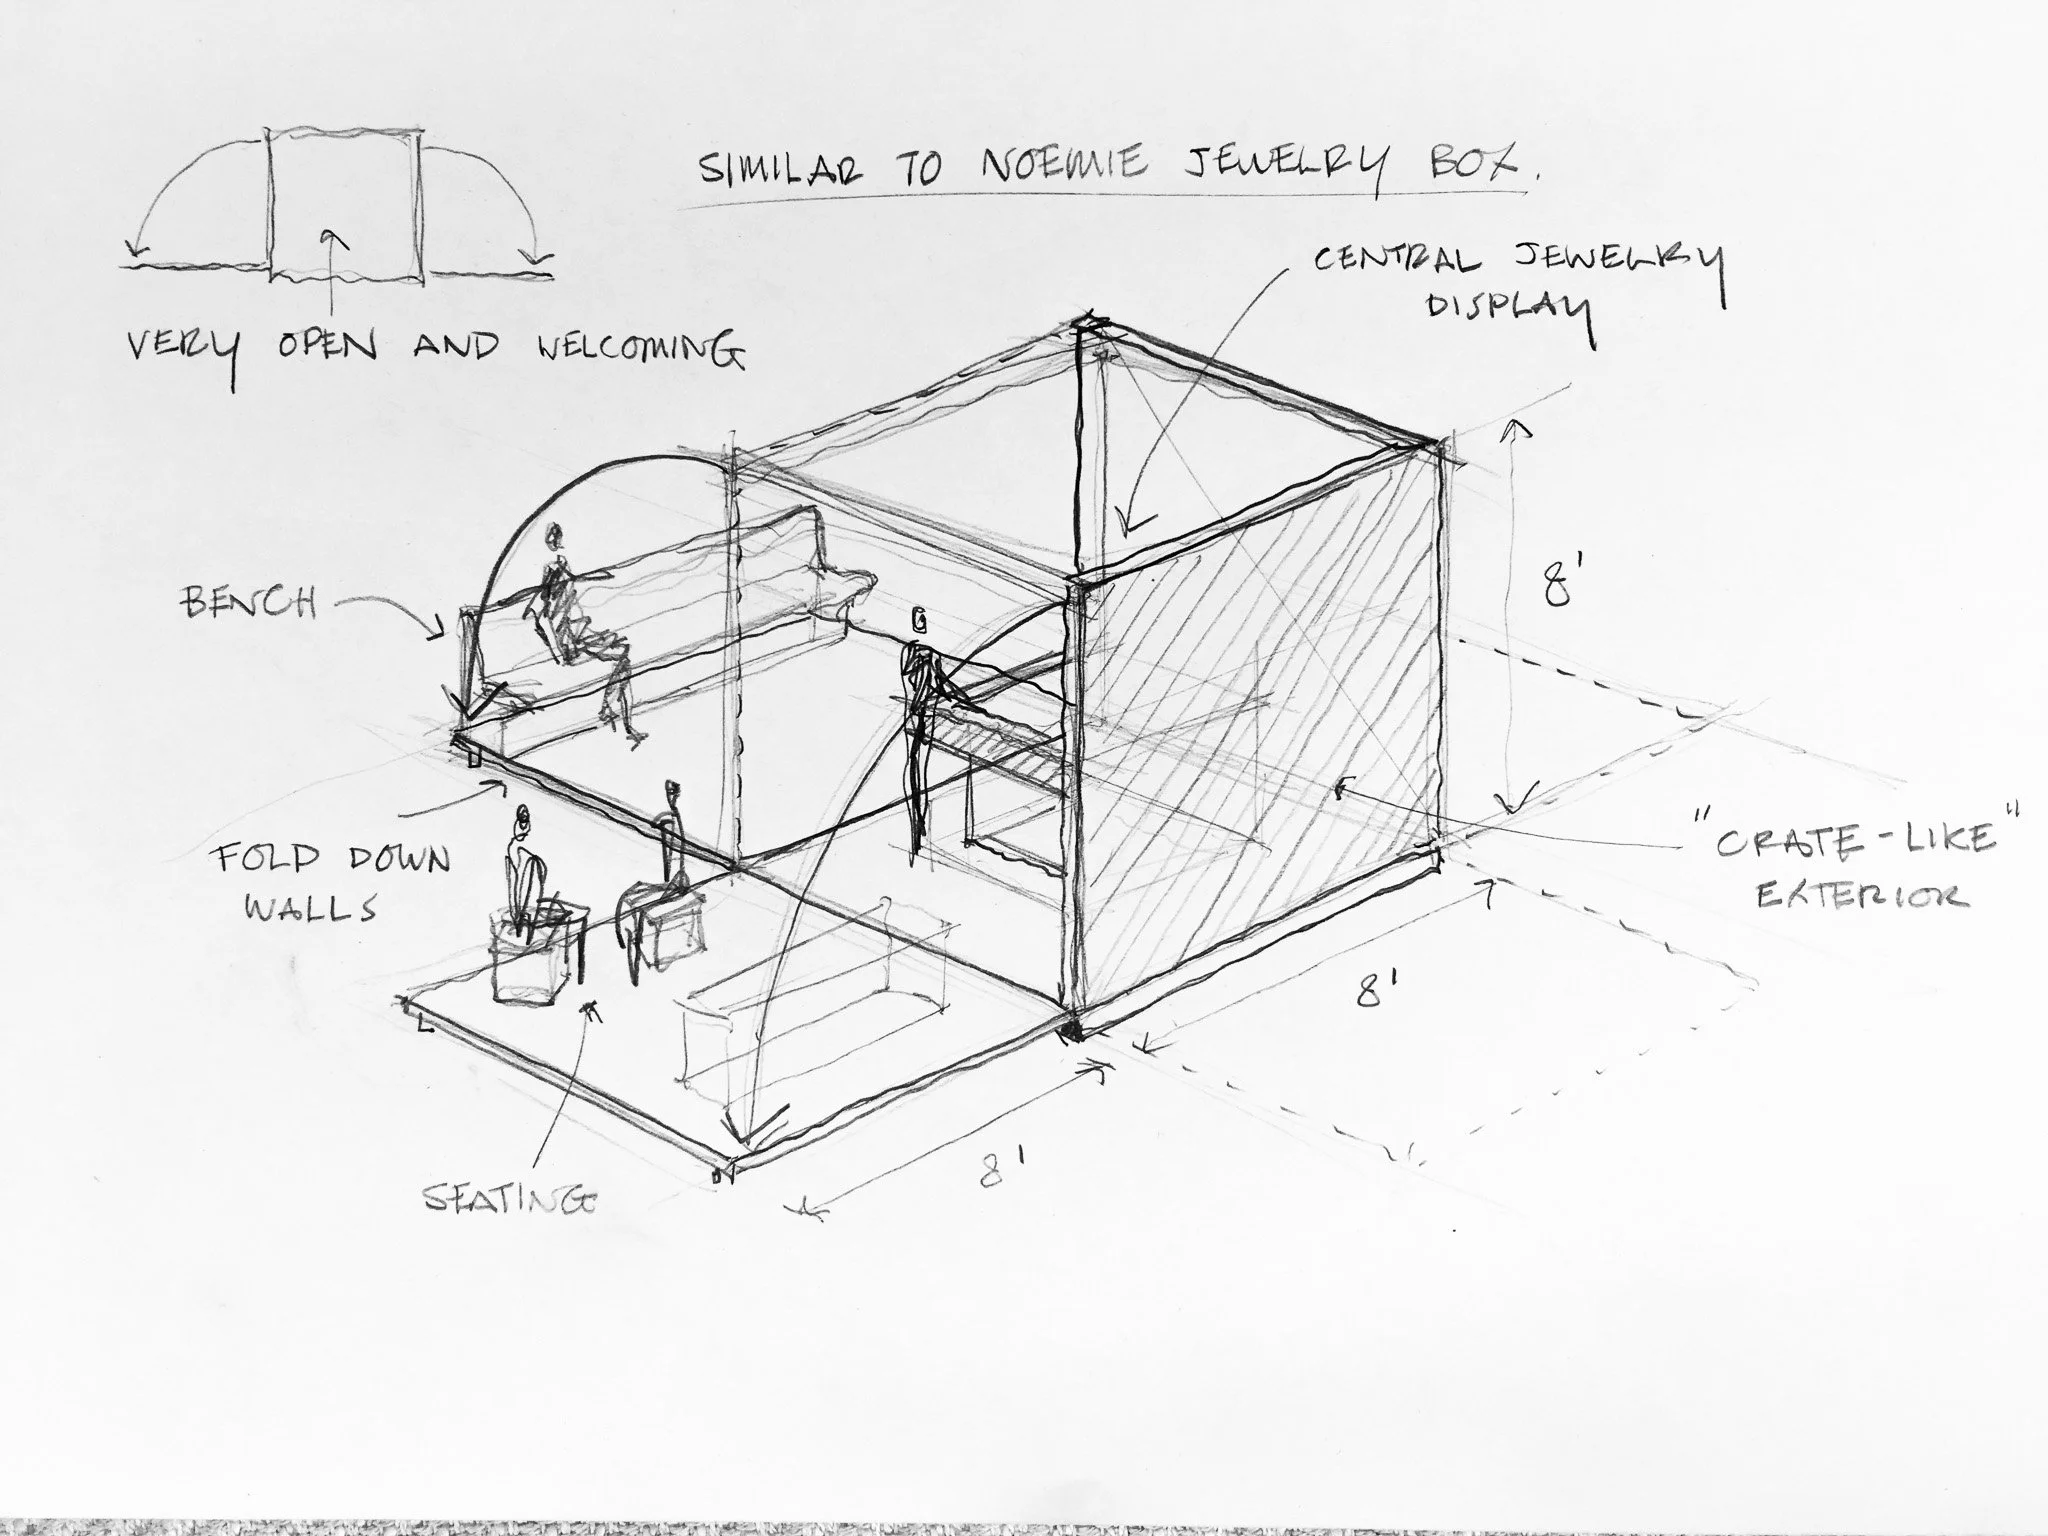 SIMILAR TO NOEMIE JEWELRY BOX.
CENTRAL JEWELRY
DISPLAY
VERY OPEN AND WELCOMING
BENCH
8'
FOLD DOWN
WALLS
"CRATE-LIKE"
EXTERIOR
8'
8'
SEATING